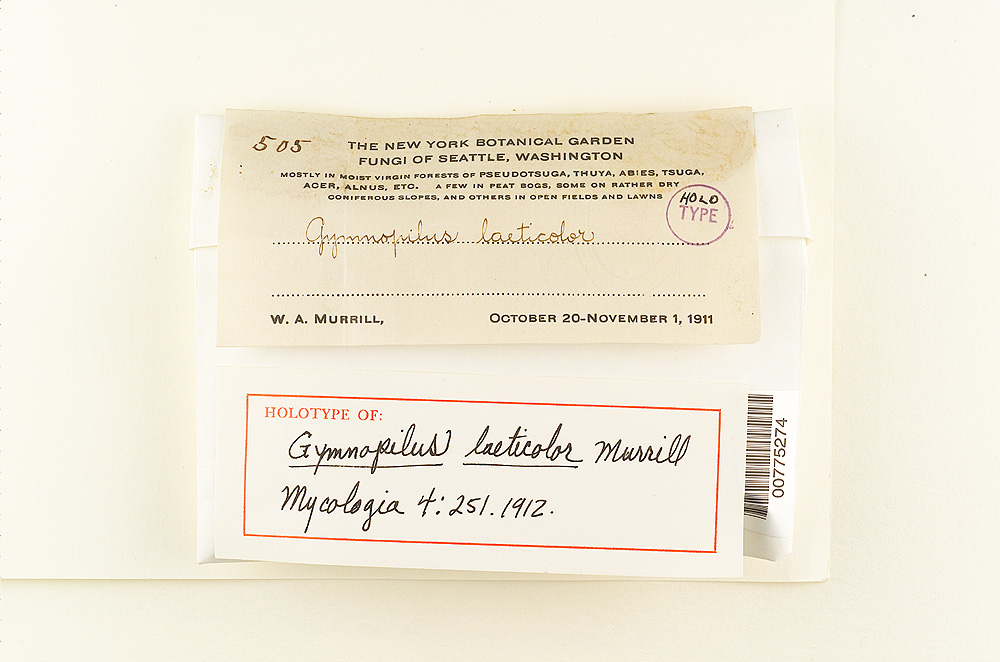 505
THE NEW YORK BOTANICAL GARDEN
FUNGI OF SEATTLE, WASHINGTON
MOSTLY IN MOIST VIRGIN FORESTS OF PSEUDOTSUGA, THUYA, ABIES, TSUGA,
ACER, ALNUS, ETC. A FEW IN PEAT BOGS, SOME ON RATHER DRY
CONIFEROUS SLOPES, AND OTHERS IN OPEN FIELDS AND LAWNS
HOLO
TYPE
Gymnopilus laeticolor
W. A. MURRILL, OCTOBER 20-NOVEMBER 1, 1911
HOLOTYPE OF:
Gymnopilus laeticolor Murrill
Mycologia 4: 251. 1912.
00775274